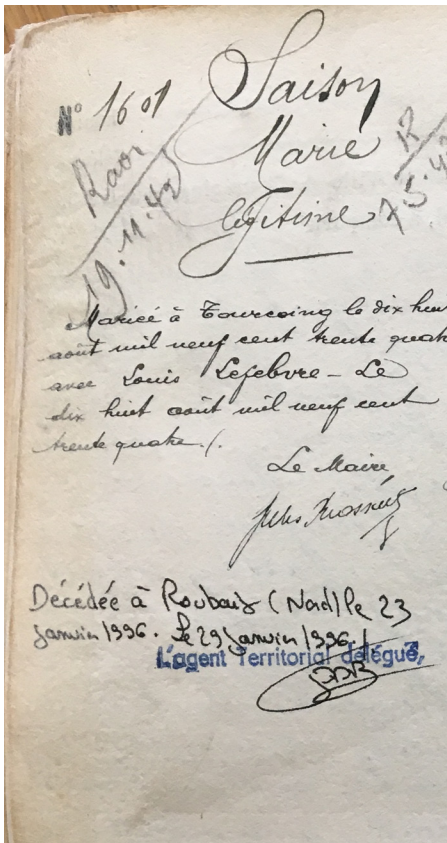 N° 1601
Saison
Marie
légitime
19.11.42
R
7.5.4
Mariée à Tourcoing le dix hui
août mil neuf cent trente quatr
avec Louis Lefebvre - Le
dix huit août mil neuf cent
trente quatre ./.
Le Maire
Jules
Décédée à Roubaix (Nord) le 23
janvier 1996. Le 29 janvier 1996 /
L'agent Territorial délégué,